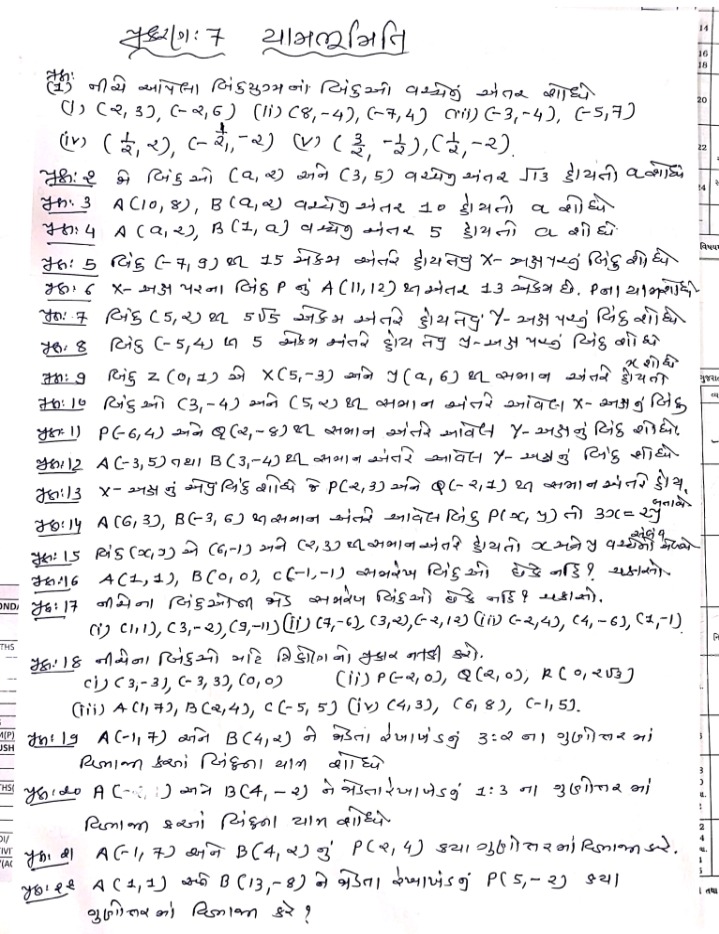 પ્રકરણ: 7 યામભૂમિતિ
પ્રશ્ન:
(1) નીચે આપેલા બિંદુયુગ્મનાં બિંદુઓ વચ્ચેનું અંતર શોધો
(i) (2, 3), (-2, 6) (ii) (8, -4), (-7, 4) (iii) (-3, -4), (-5, 7)
(iv) (1/2, 2), (-1/2, -2) (v) (3/2, -1/2), (1/2, -2).
પ્રશ્ન: 2 જો બિંદુઓ (a, 2) અને (3, 5) વચ્ચેનું અંતર √13 હોય તો a શોધો
પ્રશ્ન: 3 A(10, 8), B(a, 2) વચ્ચેનું અંતર 10 હોય તો a શોધો
પ્રશ્ન: 4 A(a, 2), B(1, a) વચ્ચેનું અંતર 5 હોય તો a શોધો
પ્રશ્ન: 5 બિંદુ (-7, 9) થી 15 એકમ અંતરે હોય તેવું X-અક્ષ પરનું બિંદુ શોધો
પ્રશ્ન: 6 X-અક્ષ પરના બિંદુ P નું A(11, 12) થી અંતર 13 એકમ છે. P ના યામ શોધો
પ્રશ્ન: 7 બિંદુ (5, 2) થી 5√5 એકમ અંતરે હોય તેવું Y-અક્ષ પરનું બિંદુ શોધો
પ્રશ્ન: 8 બિંદુ (-5, 4) થી 5 એકમ અંતરે હોય તેવું y-અક્ષ પરનું બિંદુ શોધો
પ્રશ્ન: 9 બિંદુ Z(0, 1) એ X(5, -3) અને y(a, 6) થી સમાન અંતરે હોય તો x શોધો
પ્રશ્ન: 10 બિંદુઓ (3, -4) અને (5, 2) થી સમાન અંતરે આવેલ X-અક્ષનું બિંદુ
પ્રશ્ન: 11 P(-6, 4) અને Q(2, -8) થી સમાન અંતરે આવેલ Y-અક્ષનું બિંદુ શોધો.
પ્રશ્ન: 12 A(-3, 5) તથા B(3, -4) થી સમાન અંતરે આવેલ Y-અક્ષનું બિંદુ શોધો
પ્રશ્ન: 13 X-અક્ષનું એવું બિંદુ શોધો કે P(2, 3) અને Q(-2, 1) થી સમાન અંતરે હોય.
પ્રશ્ન: 14 A(6, 3), B(-3, 6) થી સમાન અંતરે આવેલ બિંદુ P(x, y) તો 3x = y બતાવો
પ્રશ્ન: 15 બિંદુ (x, y) એ (6, -1) અને (2, 3) થી સમાન અંતરે હોય તો x અને y વચ્ચેનો સંબંધ
પ્રશ્ન: 16 A(1, 1), B(0, 0), C(-1, -1) સમરેખ બિંદુઓ છે કે નહિ? ચકાસો.
પ્રશ્ન: 17 નીચેના બિંદુઓની જોડ સમરેખ બિંદુઓ છે કે નહિ? ચકાસો.
(i) (1, 1), (3, -2), (9, -11) (ii) (7, -6), (3, 2), (-2, 12) (iii) (-2, 4), (4, -6), (1, -1)
પ્રશ્ન: 18 નીચેના બિંદુઓ માટે ત્રિકોણનો પ્રકાર નક્કી કરો.
(i) (3, -3), (-3, 3), (0, 0) (ii) P(-2, 0), Q(2, 0), R(0, 2√3)
(iii) A(1, 7), B(2, 4), C(-5, 5) (iv) (4, 3), (6, 8), (-1, 5).
પ્રશ્ન: 19 A(-1, 7) અને B(4, 2) ને જોડતા રેખાખંડનું 3:2 ના ગુણોત્તરમાં
વિભાજન કરતાં બિંદુના યામ શોધો
પ્રશ્ન: 20 અને B(4, -2) ને જોડતા રેખાખંડનું 1:3 ના ગુણોત્તરમાં
વિભાજન કરતાં બિંદુના યામ શોધો
પ્રશ્ન: 21 A(-1, 7) અને B(4, 2) નું P(2, 4) કયા ગુણોત્તરમાં વિભાજન કરે.
પ્રશ્ન: 22 A(1, 1) અને B(13, -8) ને જોડતા રેખાખંડનું P(5, -2) કયા
ગુણોત્તરમાં વિભાજન કરે?